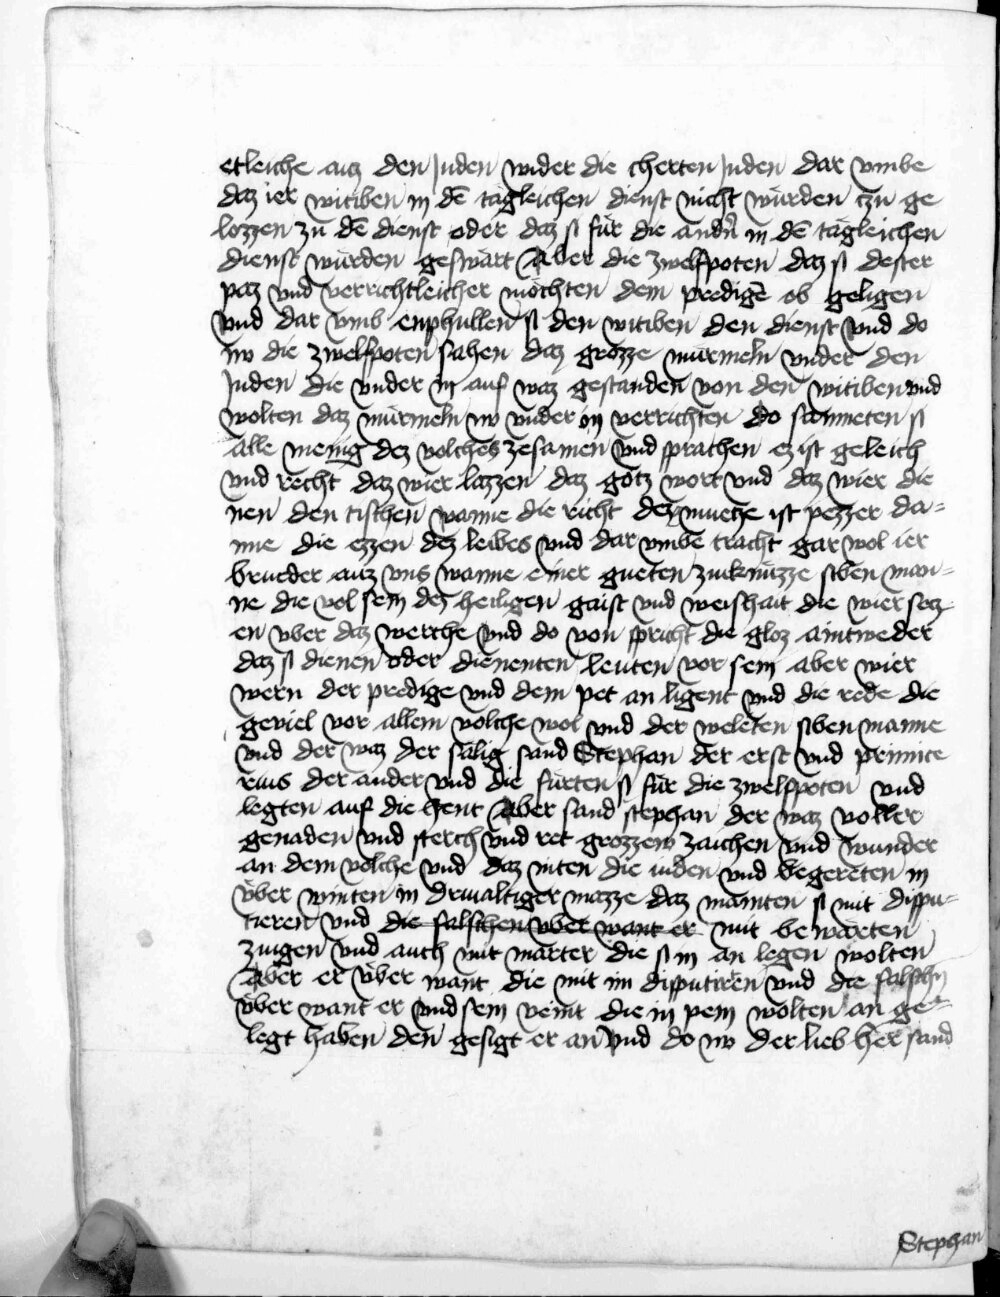 etleiche auz den Juden wider die cherten Juden dar vmbe
daz ier witiben in dē tägleichen dienst nicht würden tzu ge
lozzen zu dē dienst oder daz si für die andn̄ in dē tägleichen
dienst würden geswärt Aber die zwelfpoten daz si dester
paz vnd verrichtleicher möchten dem predigē ob geligen
vnd dar vmb enphullen si den witiben den dienst vnd do
nw die zwelfpoten sahen daz grozze mürmeln vnder den
Juden die vnder in auf waz gestanden von den witiben vnd
wolten daz mürmeln nw vnder in verrichten do sammeten si
alle menig dez volches zesamen vnd sprachen ez ist geleich
vnd recht daz wier lazzen daz gotz wort vnd daz wier die
nen den tischen wanne die richt dez muetz ist pezzer da=
nne die ezzen dez leibes vnd dar vmbe tracht gar wol ier
brueder auz vns wanne einer gueten zucknüzze siben man=
ne die vol sein dez heiligen gaist vnd weishait die wier setz
en vber daz werche vnd do von spricht die gloz aintweder
daz si dienen oder dienenten leuten vor sein aber wier
wern der predige vnd dem pet an ligent vnd die rede die
geviel vor allem volche wol vnd der weleten siben manne
vnd der waz der sälig sand Stephan der erst vnd primice
rius der ander vnd die fürten si für die zwelfpoten vnd
legten auf die hent Aber sand stephan der waz voller
genaden vnd sterch vnd tet grozzew zaichen vnd wunder
an dem volche vnd daz niten die iuden vnd begereten in
vber winten in drivaltiger mazze daz mainten si mit dispu=
tieren vnd die falschen vber want er mit bewärten
zeugen vnd auch mit marter die si in an legen wolten
Aber er vber want die mit im disputirēn vnd die falschn̄
vber want er vnd sein veint die in pein wolten an ge=
legt haben den gesigt er an vnd do nw der lieb her sand
Stephan